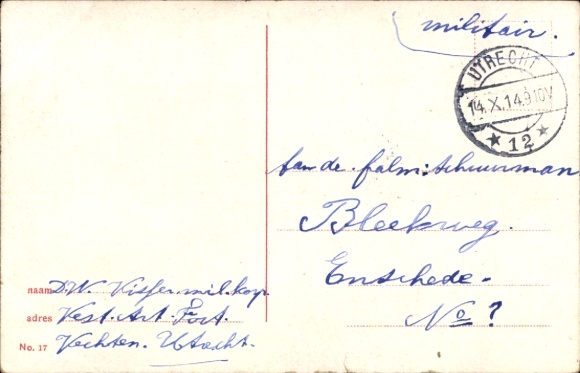 militair.
UTRECHT
14.X.14.9-10V
★ 12 ★
Aan de fam: Schuurman
Bleekweg.
Enschede.
No ?
naam D.W. Visser. mil. korp.
adres Vest. Art. Fort.
No. 17 Vechten. Utrecht.